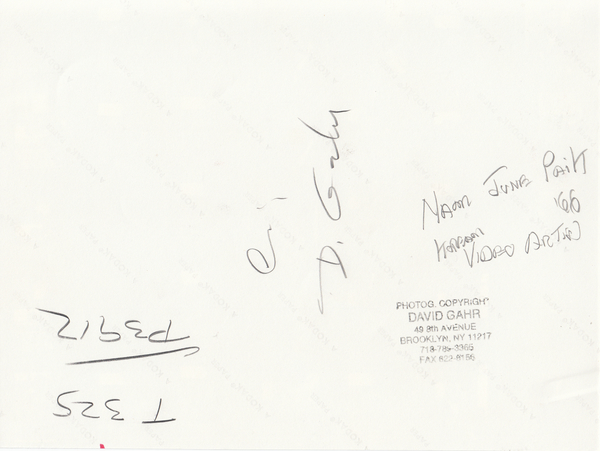 NAM JUNE PAIK
'66
KOREAN
VIDEO ARTIST
D. Gahr
PHOTOG. COPYRIGHT
DAVID GAHR
49 8th AVENUE
BROOKLYN, NY 11217
718-789-3365
FAX
T 325
P3912